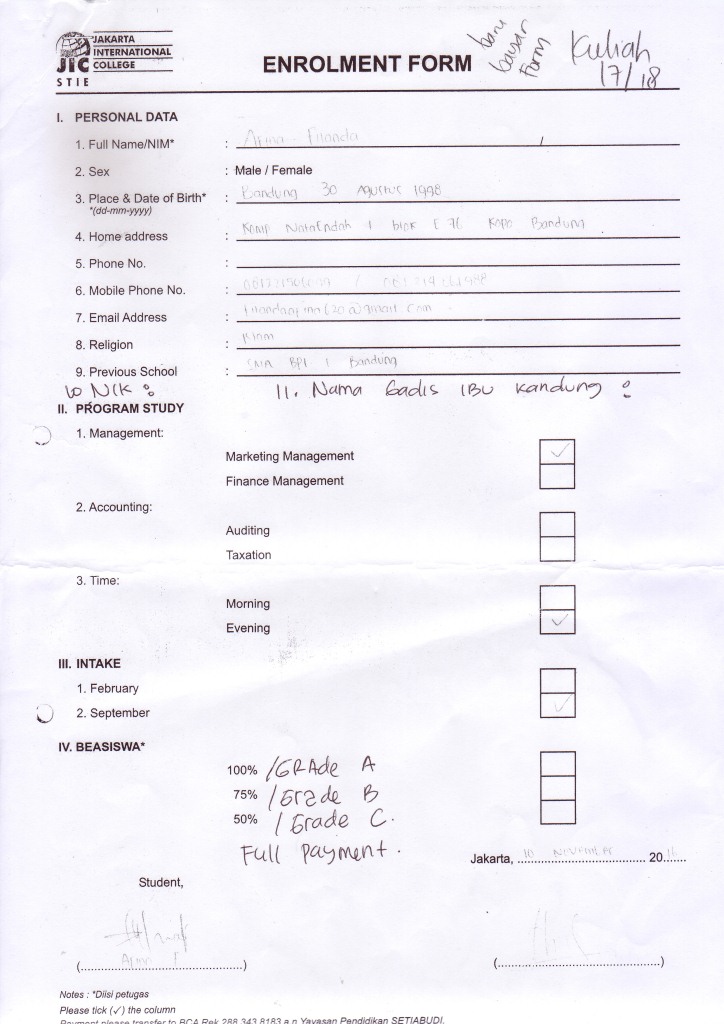 JAKARTA
INTERNATIONAL
COLLEGE
JIC
STIE
ENROLMENT FORM
baru
bayar
Form
Kuliah
17/18
I. PERSONAL DATA
1. Full Name/NIM* :
2. Sex : Male / Female
3. Place & Date of Birth* : Bandung 30 Agustus 1998
*(dd-mm-yyyy)
4. Home address : Komp NataEndah 1 blok E 76 Kopo Bandung
5. Phone No. :
6. Mobile Phone No. :
7. Email Address :
8. Religion :
9. Previous School : SMA BPI 1 Bandung
10 NIK :
11. Nama Gadis IBU Kandung :
II. PROGRAM STUDY
1. Management:
Marketing Management ✓
Finance Management
2. Accounting:
Auditing
Taxation
3. Time:
Morning
Evening ✓
III. INTAKE
1. February
2. September ✓
IV. BEASISWA*
100% /GRAde A
75% /Grade B
50% /Grade C.
Full Payment.
Jakarta, 10 November 2016
Student,
(..............................................)
(..............................................)
Notes : *Diisi petugas
Please tick (✓) the column
Payment please transfer to BCA Rek 288 343 8183 a.n Yayasan Pendidikan SETIABUDI.